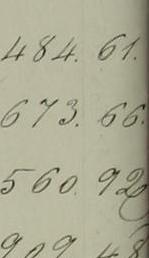 484. 61.
673. 66.
560. 92
909. 48